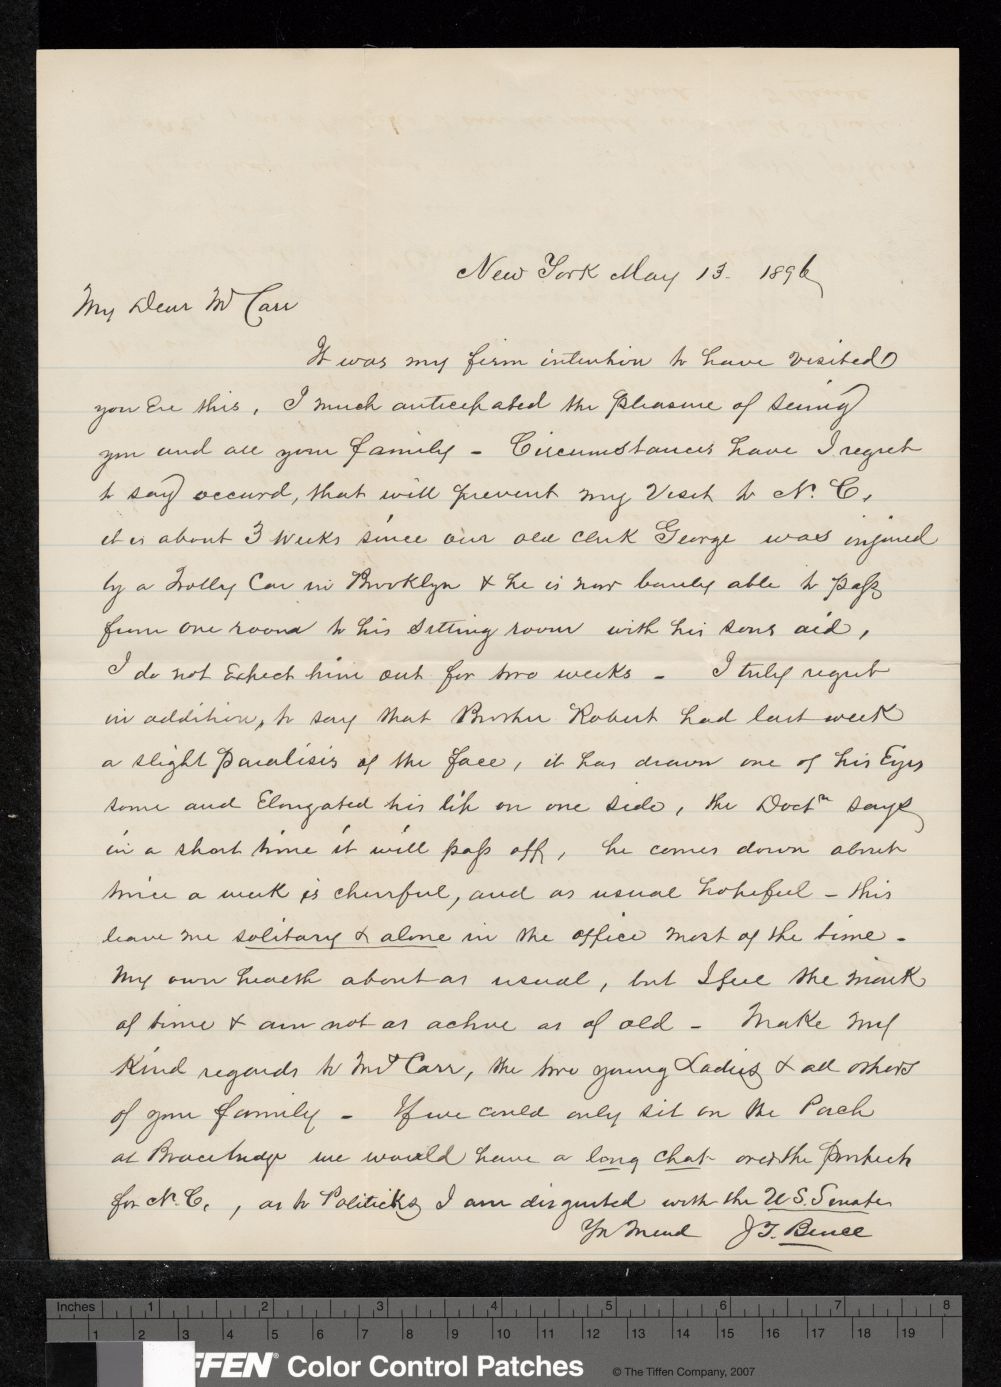 New York May 13. 1896
My Dear Mr Carr
It was my firm intention to have visited
you Ere this, I much anticepated the pleasure of seeing
you and all your family - Circumstances have I regret
to say occurd, that will prevent my Visit to N. C,
it is about 3 Weeks since our old clerk George was injured
by a Trolly Car in Brooklyn & he is now barely able to pass
from one room to his sitting room with his sons aid,
I do not Expect him out for two weeks - I truly regret
in addition, to say that Brother Robert had last week
a slight Paralisis of the face, it has drawn one of his Eyes
some and Elongated his lip on one side, the Doctr says
in a short time it will pass off, he comes down about
twice a week is cheerful, and as usual hopeful - this
leave me solitary & alone in the office most of the time -
My own health about as usual, but I feel the mark
of time & am not as active as of old - Make my
Kind regards to Mrs Carr, the two young Ladies & all others
of your family - If we could only sit on the Porch
at Bracebridge we would have a long chat over the Prospects
for N. C, , as to Politicks I am disgusted with the U.S. Senate
Yr Friend J. T. Bruce
Inches 1 2 3 4 5 6 7 8
1 2 3 4 5 6 7 8 9 10 11 12 13 14 15 16 17 18 19
FFEN® Color Control Patches © The Tiffen Company, 2007